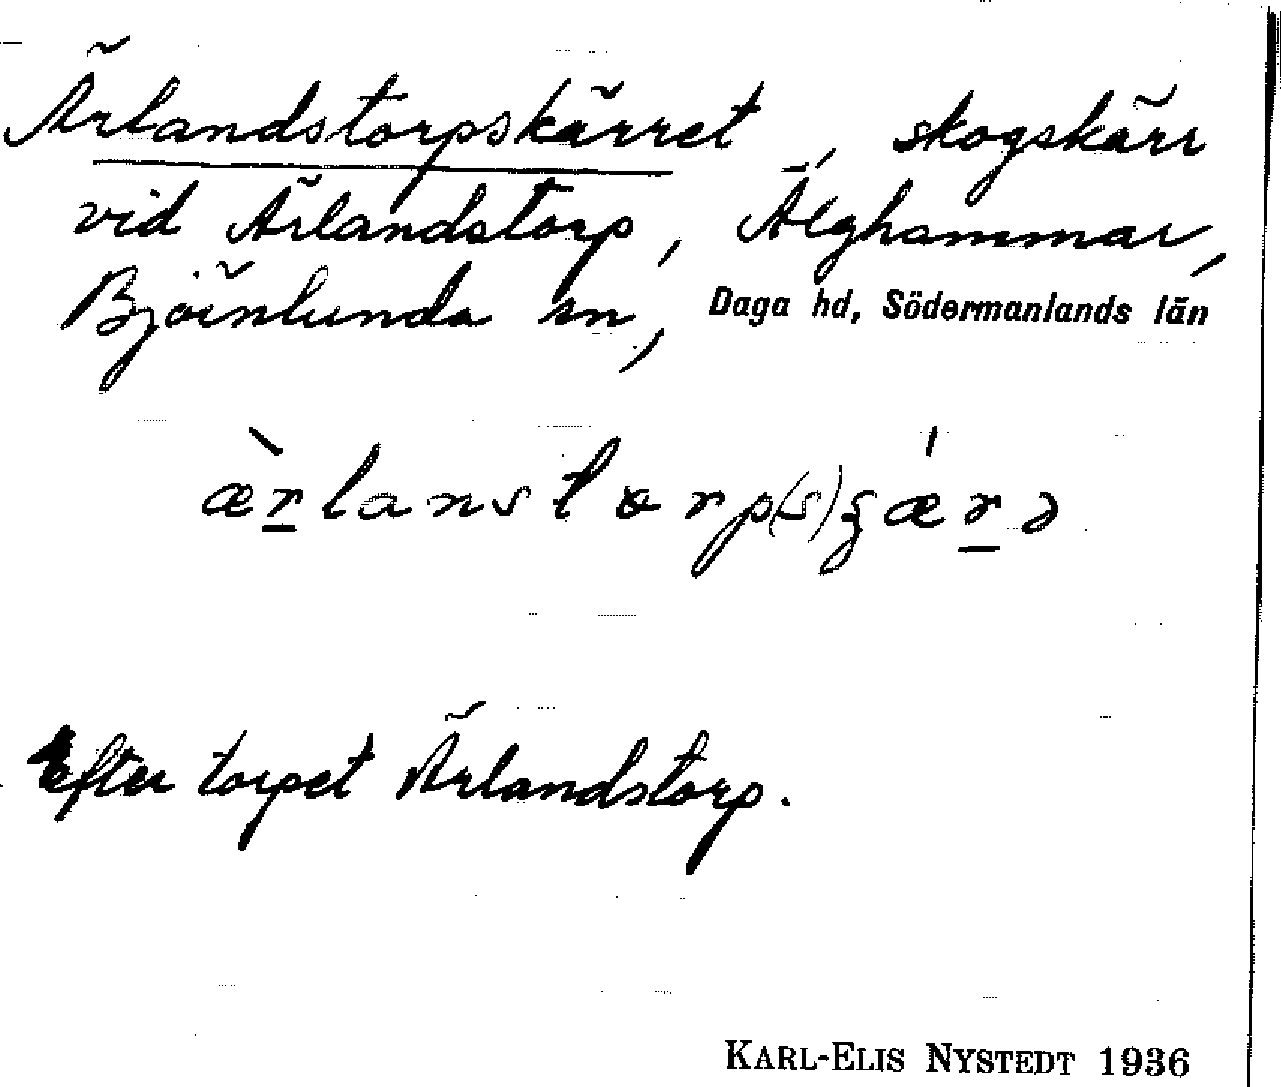 Ärlandstorpskärret, skogskärr
vid Ärlandstorp, Älghammar,
Björnlunda sn, Daga hd, Södermanlands län
æ̀r̲lanstorp(s)ʂǽr̲ə
Efter torpet Ärlandstorp.
KARL-ELIS NYSTEDT 1936